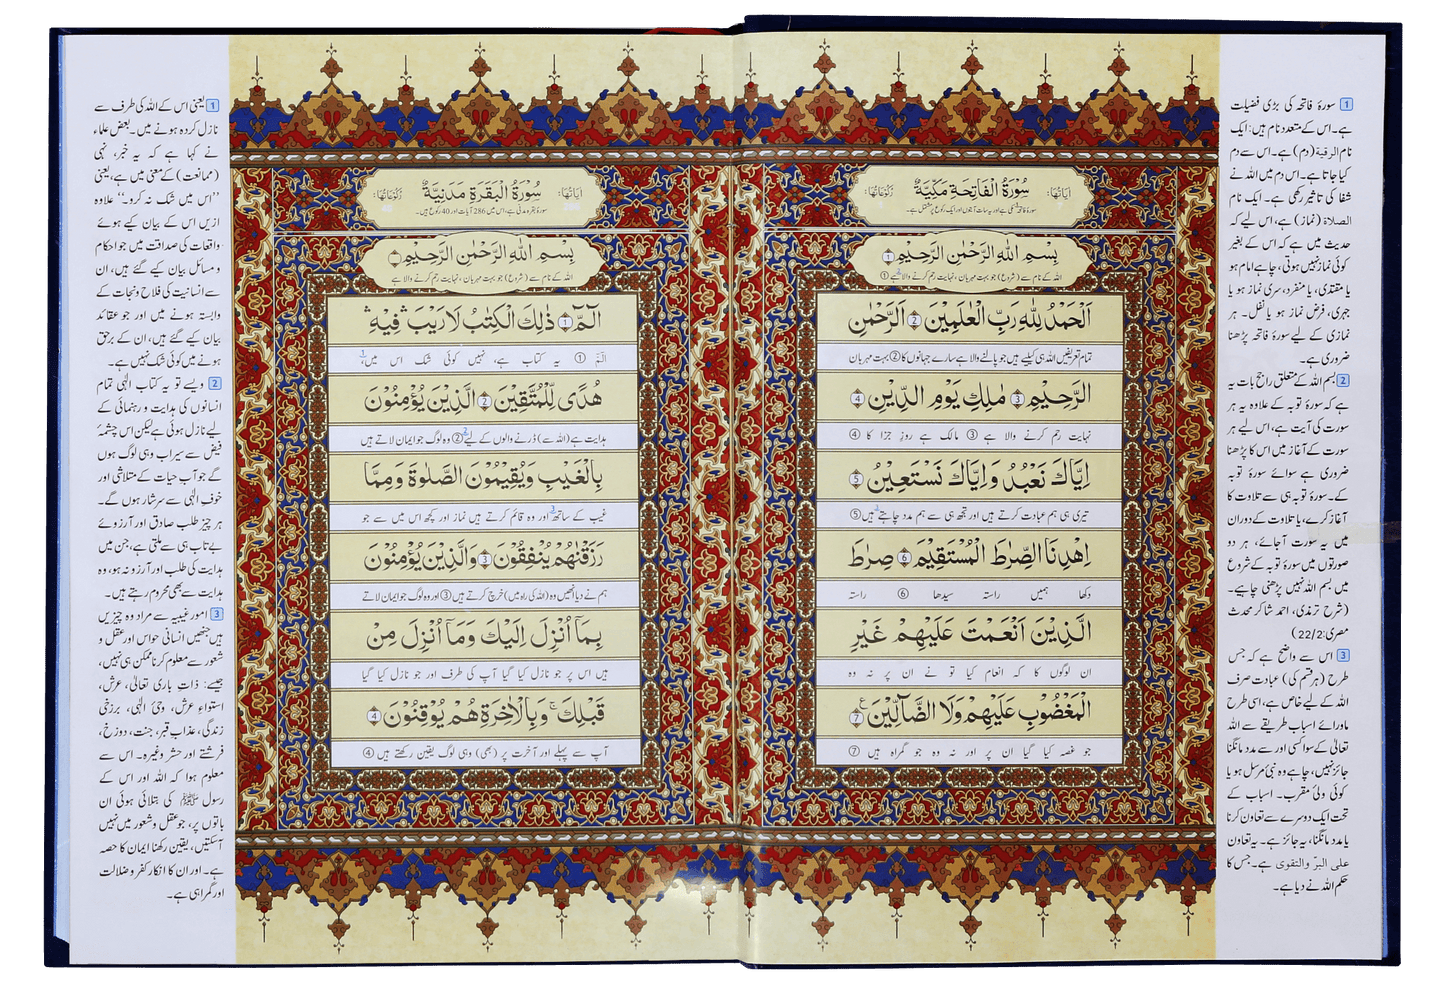 1 سورۂ فاتحہ کی بڑی فضیلت
ہے۔ اس کے متعدد نام ہیں: ایک
نام الرقیة (دم) ہے۔ اس سے دم
کیا جاتا ہے۔ اس دم میں اللہ نے
شفا کی تاثیر رکھی ہے۔ ایک نام
الصلاة (نماز) ہے، اس لیے کہ
حدیث میں ہے کہ اس کے بغیر
کوئی نماز نہیں ہوتی، چاہے امام ہو
یا مقتدی، یا منفرد، سری نماز ہو یا
جہری، فرض نماز ہو یا نفل۔ ہر
نمازی کے لیے سورۂ فاتحہ پڑھنا
ضروری ہے۔
2 بسم اللہ کے متعلق راجح بات یہ
ہے کہ سورۂ توبہ کے علاوہ یہ ہر
سورت کی آیت ہے، اس لیے ہر
سورت کے آغاز میں اس کا پڑھنا
ضروری ہے سوائے سورۂ توبہ
کے۔ سورۂ توبہ ہی سے تلاوت کا
آغاز کرے، یا تلاوت کے دوران
میں یہ سورت آجائے، ہر دو
صورتوں میں سورۂ توبہ کے شروع
میں بسم اللہ نہیں پڑھنی چاہیے۔
(شرح ترمذی، احمد شاکر محدث
مصری: 22/2)
3 اس سے واضح ہے کہ جس
طرح (ہر قسم کی) عبادت صرف
اللہ کے لیے خاص ہے، اسی طرح
ماورائے اسباب طریقے سے اللہ
تعالیٰ کے سوا کسی اور سے مدد مانگنا
جائز نہیں، چاہے وہ نبیٔ مرسل ہو یا
کوئی ولیٔ مقرب۔ اسباب کے
تحت ایک دوسرے سے تعاون کرنا
یا مدد مانگنا، یہ جائز ہے۔ یہ تعاون
علی البرّ والتقوی ہے۔ جس کا
حکم اللہ نے دیا ہے۔
اٰیَاتُهَا: سُوْرَةُ الْفَاتِحَةِ مَكِّيَّةٌ رُكُوْعَاتُهَا:
بِسْمِ اللّٰهِ الرَّحْمٰنِ الرَّحِيْمِ 1
اللہ کے نام سے (شروع) جو بہت مہربان، نہایت رحم کرنے والا ہے ①
اَلْحَمْدُ لِلّٰهِ رَبِّ الْعٰلَمِيْنَ 2 الرَّحْمٰنِ
تمام تعریفیں اللہ ہی کیلئے ہیں جو پالنے والا ہے سارے جہانوں کا ② بہت مہربان
الرَّحِيْمِ 3 مٰلِكِ يَوْمِ الدِّيْنِ 4
نہایت رحم کرنے والا ہے ③ مالک ہے روزِ جزا کا ④
اِيَّاكَ نَعْبُدُ وَاِيَّاكَ نَسْتَعِيْنُ 5
تیری ہی ہم عبادت کرتے ہیں اور تجھ ہی سے ہم مدد چاہتے 3 ہیں ⑤
اِهْدِنَا الصِّرَاطَ الْمُسْتَقِيْمَ 6 صِرَاطَ
دکھا ہمیں راستہ سیدھا ⑥ راستہ
الَّذِيْنَ اَنْعَمْتَ عَلَيْهِمْ غَيْرِ
ان لوگوں کا کہ انعام کیا تو نے ان پر نہ وہ
الْمَغْضُوْبِ عَلَيْهِمْ وَلَا الضَّآلِّيْنَ 7
جو غصہ کیا گیا ان پر اور نہ وہ جو گمراہ ہیں ⑦
اٰیَاتُهَا: سُوْرَةُ الْبَقَرَةِ مَدَنِيَّةٌ رُكُوْعَاتُهَا:
سورۂ بقرہ مدنی ہے، اس میں 286 آیات اور 40 رکوع ہیں۔
بِسْمِ اللّٰهِ الرَّحْمٰنِ الرَّحِيْمِ
اللہ کے نام سے (شروع) جو بہت مہربان، نہایت رحم کرنے والا ہے
الٓمّٓ 1 ذٰلِكَ الْكِتٰبُ لَا رَيْبَ ۛ فِيْهِ ۛ
الٓمّٓ ① یہ کتاب ہے، نہیں کوئی شک اس میں، 1
هُدًى لِّلْمُتَّقِيْنَ 2 الَّذِيْنَ يُؤْمِنُوْنَ
ہدایت ہے (اللہ سے) ڈرنے والوں کے لیے 2 ② وہ لوگ جو ایمان لاتے ہیں
بِالْغَيْبِ وَيُقِيْمُوْنَ الصَّلٰوةَ وَمِمَّا
غیب کے ساتھ 3 اور وہ قائم کرتے ہیں نماز اور کچھ اس میں سے جو
رَزَقْنٰهُمْ يُنْفِقُوْنَ 3 وَالَّذِيْنَ يُؤْمِنُوْنَ
ہم نے دیا انھیں وہ (اللہ کی راہ میں) خرچ کرتے ہیں ③ اور وہ لوگ جو ایمان لاتے
بِمَآ اُنْزِلَ اِلَيْكَ وَمَآ اُنْزِلَ مِنْ
ہیں اس پر جو نازل کیا گیا آپ کی طرف اور جو نازل کیا گیا
قَبْلِكَ ۚ وَبِالْاٰخِرَةِ هُمْ يُوْقِنُوْنَ 4
آپ سے پہلے اور آخرت پر (بھی) وہی لوگ یقین رکھتے ہیں ④
1 یعنی اس کے اللہ کی طرف سے
نازل کردہ ہونے میں۔ بعض علماء
نے کہا ہے کہ یہ خبر، نہی
(ممانعت) کے معنی میں ہے، یعنی
”اس میں شک نہ کرو۔“ علاوہ
ازیں اس کے بیان کیے ہوئے
واقعات کی صداقت میں جو احکام
و مسائل بیان کیے گئے ہیں، ان
سے انسانیت کی فلاح و نجات کے
وابستہ ہونے میں اور جو عقائد
بیان کیے گئے ہیں، ان کے برحق
ہونے میں کوئی شک نہیں ہے۔
2 ویسے تو یہ کتاب الٰہی تمام
انسانوں کی ہدایت و رہنمائی کے
لیے نازل ہوئی ہے لیکن اس چشمۂ
فیض سے سیراب وہی لوگ ہوں
گے جو آب حیات کے متلاشی اور
خوف الٰہی سے سرشار ہوں گے۔
ہر چیز طلب صادق اور آرزوئے
بے تاب ہی سے ملتی ہے، جن میں
ہدایت کی طلب اور آرزو نہ ہو، وہ
ہدایت سے بھی محروم رہتے ہیں۔
3 امور غیبیہ سے مراد وہ چیزیں
ہیں جنھیں انسانی حواس اور عقل و
شعور سے معلوم کرنا ممکن ہی نہیں،
جیسے: ذات باری تعالیٰ، عرش،
استواء عرش، وحیٔ الٰہی، برزخی
زندگی، عذاب قبر، جنت، دوزخ،
فرشتے اور حشر وغیرہ۔ اس سے
معلوم ہوا کہ اللہ اور اس کے
رسول ﷺ کی بتلائی ہوئی ان
باتوں پر، جو عقل و شعور میں نہیں
آسکتیں، یقین رکھنا ایمان کا حصہ
ہے۔ اور ان کا انکار کفر و ضلالت
اور گمراہی ہے۔